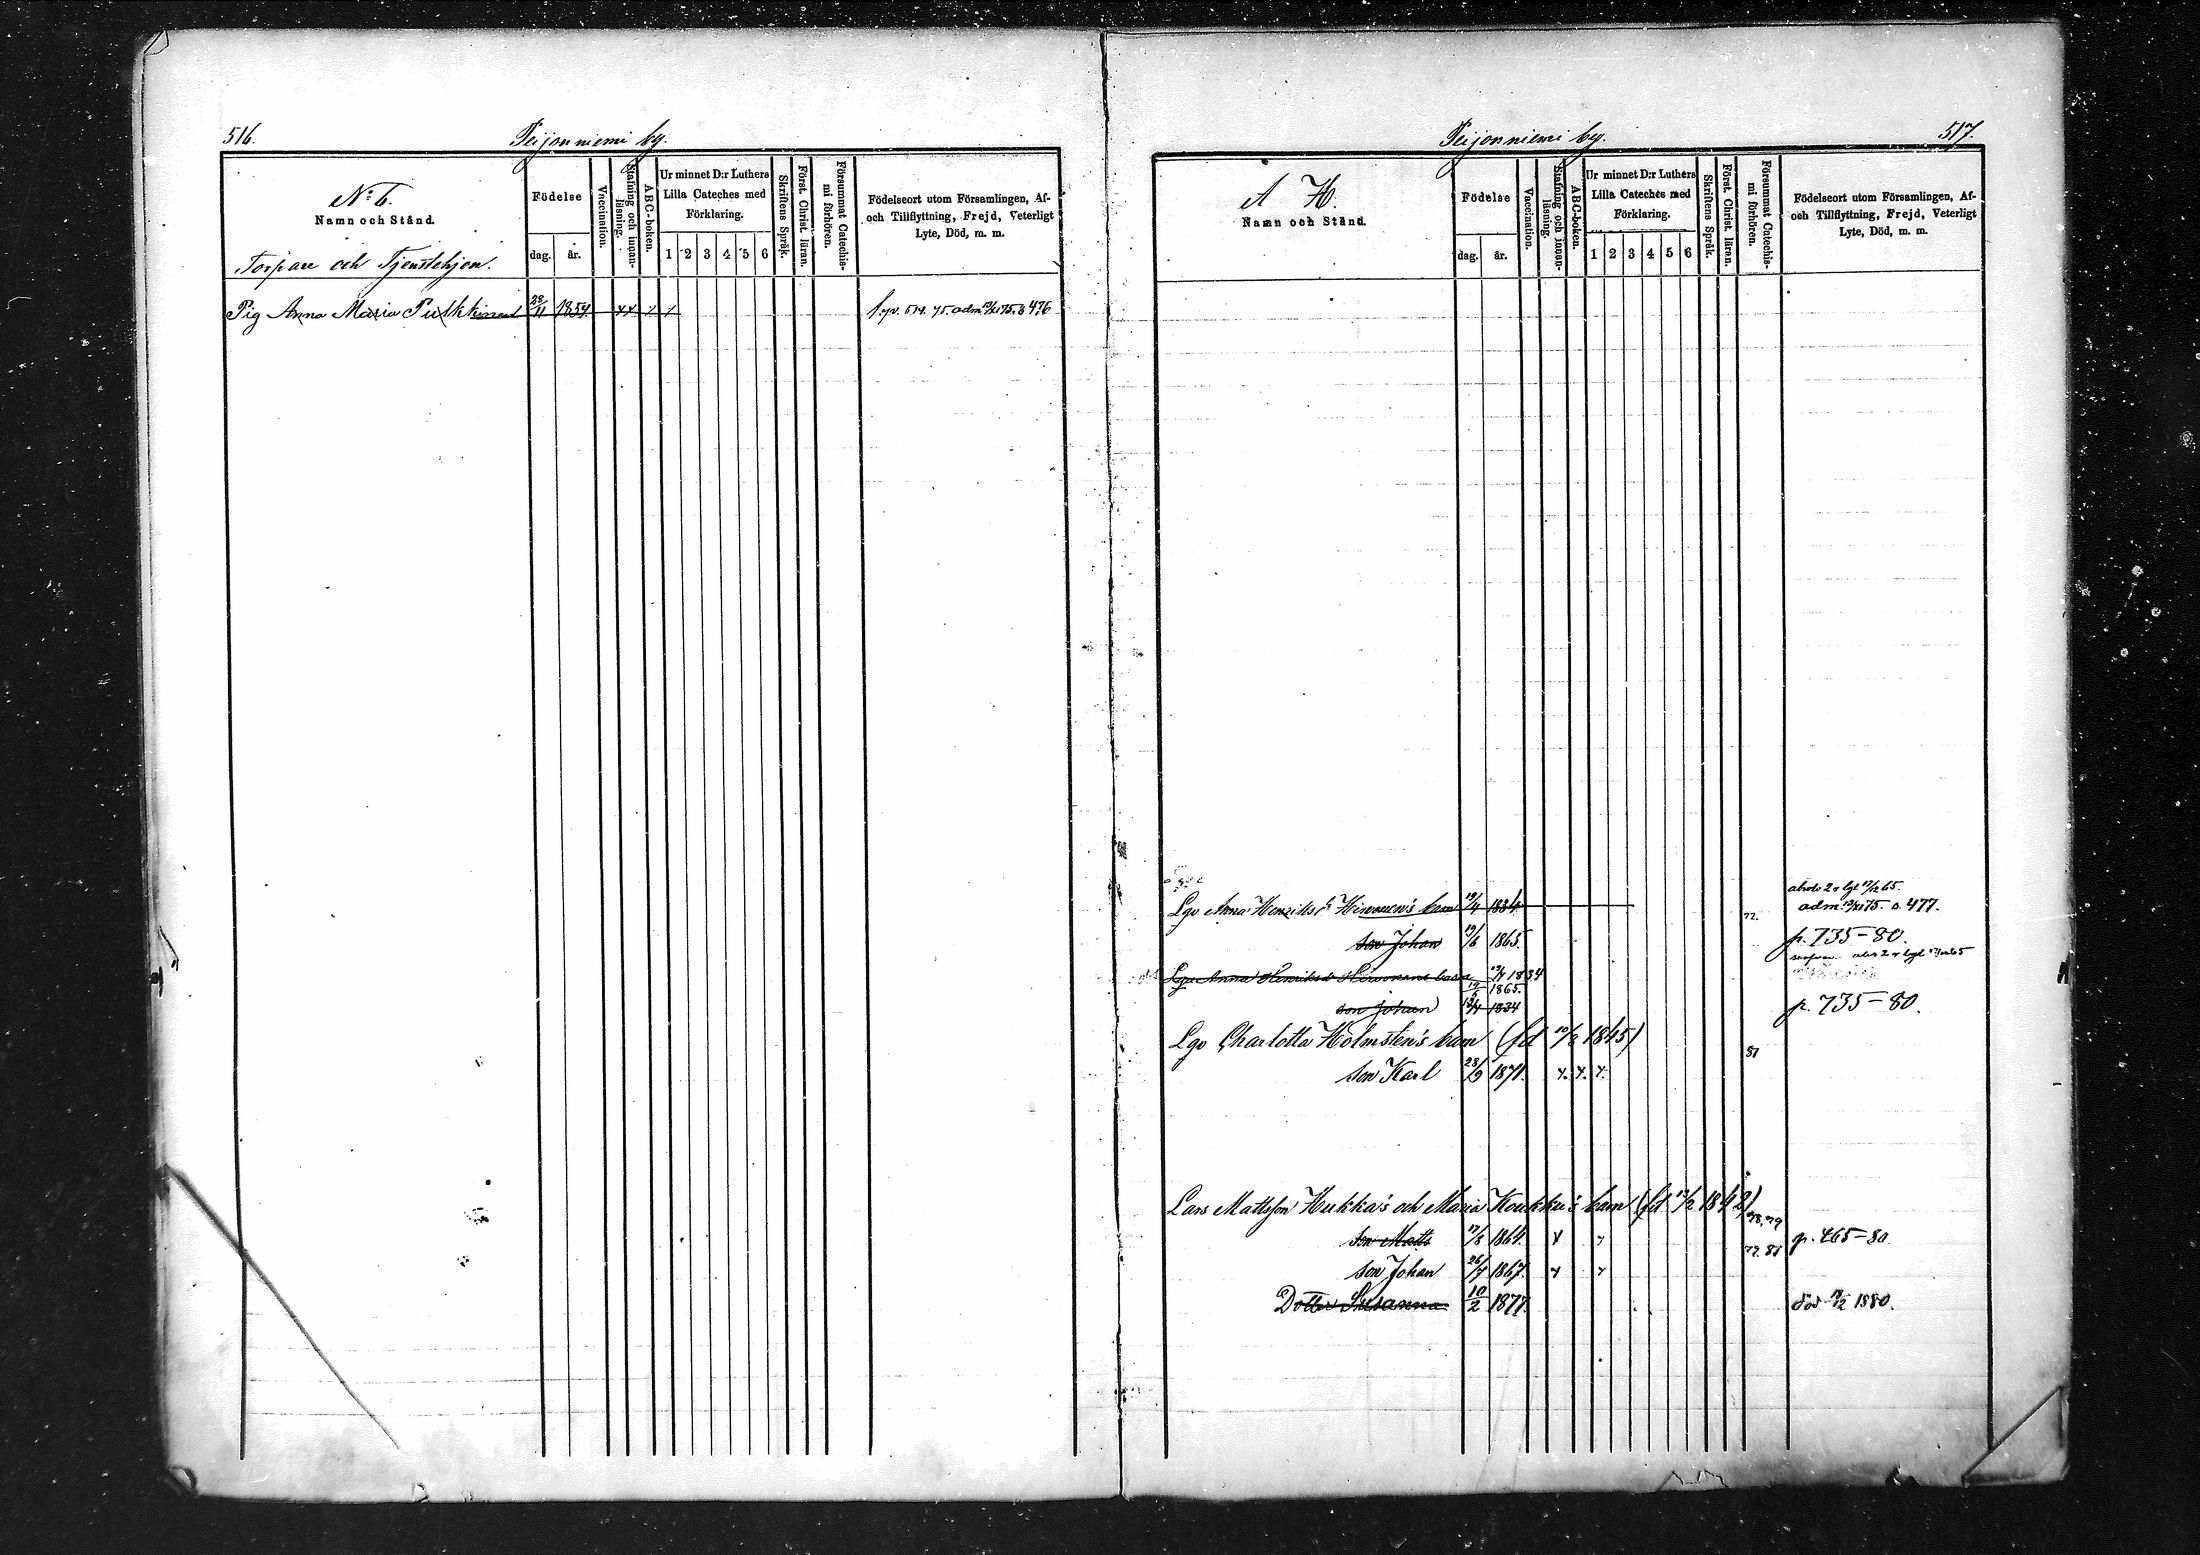 516.
Peijonniemi by.
No 6.
Namn och Stånd.
Torpare och Tjenstehjon.
Födelse
dag. år.
Vaccination.
Stafning och innan-läsning.
ABC-boken.
Ur minnet D:r Luthers
Lilla Cateches med
Förklaring.
1 2 3 4 5 6
Skriftens Språk.
Först. Christ. läran.
Försummat Catechis-
mi förhören.
Födelseort utom Församlingen, Af-
och Tillflyttning, Frejd, Veterligt
Lyte, Död, m. m.
Pig Anna Maria 28/11 1854 514. 75. adm. 75. s 476
Peijonniemi by.
517.
A H.
Namn och Stånd.
Födelse
dag. år.
Vaccination.
Stafning och innan-läsning.
ABC-boken.
Ur minnet D:r Luthers
Lilla Cateches med
Förklaring.
1 2 3 4 5 6
Skriftens Språk.
Först. Christ. läran.
Försummat Catechis-
mi förhören.
Födelseort utom Församlingen, Af-
och Tillflyttning, Frejd, Veterligt
Lyte, Död, m. m.
absol. 2 r lgl 17/12 65.
Lgo Anna Henriksd. Hirvonen's barn 19/4 1834 77. adm. 75. s. 477.
son Johan 19/6 1865. p. 735-80.
Lgo Anna Henriksd. Hirvonens barn 19/4 1834
19/6 1865.
son Johan 19/4 1834 p. 735-80.
Lgo Charlotta Holmsten's barn (fd 10/2 1845)
81
son Karl 28/9 1871. x. x. x.
Lars Mattsson Hukka's och Maria Koukku's barn (fd 12/2 1842)
78, 79
son Matts 17/8 1864. x x p. 465-80
77. 81
son Johan 26/7 1867. x x
Dotter Susanna 10/2 1877. död 18/12 1880.